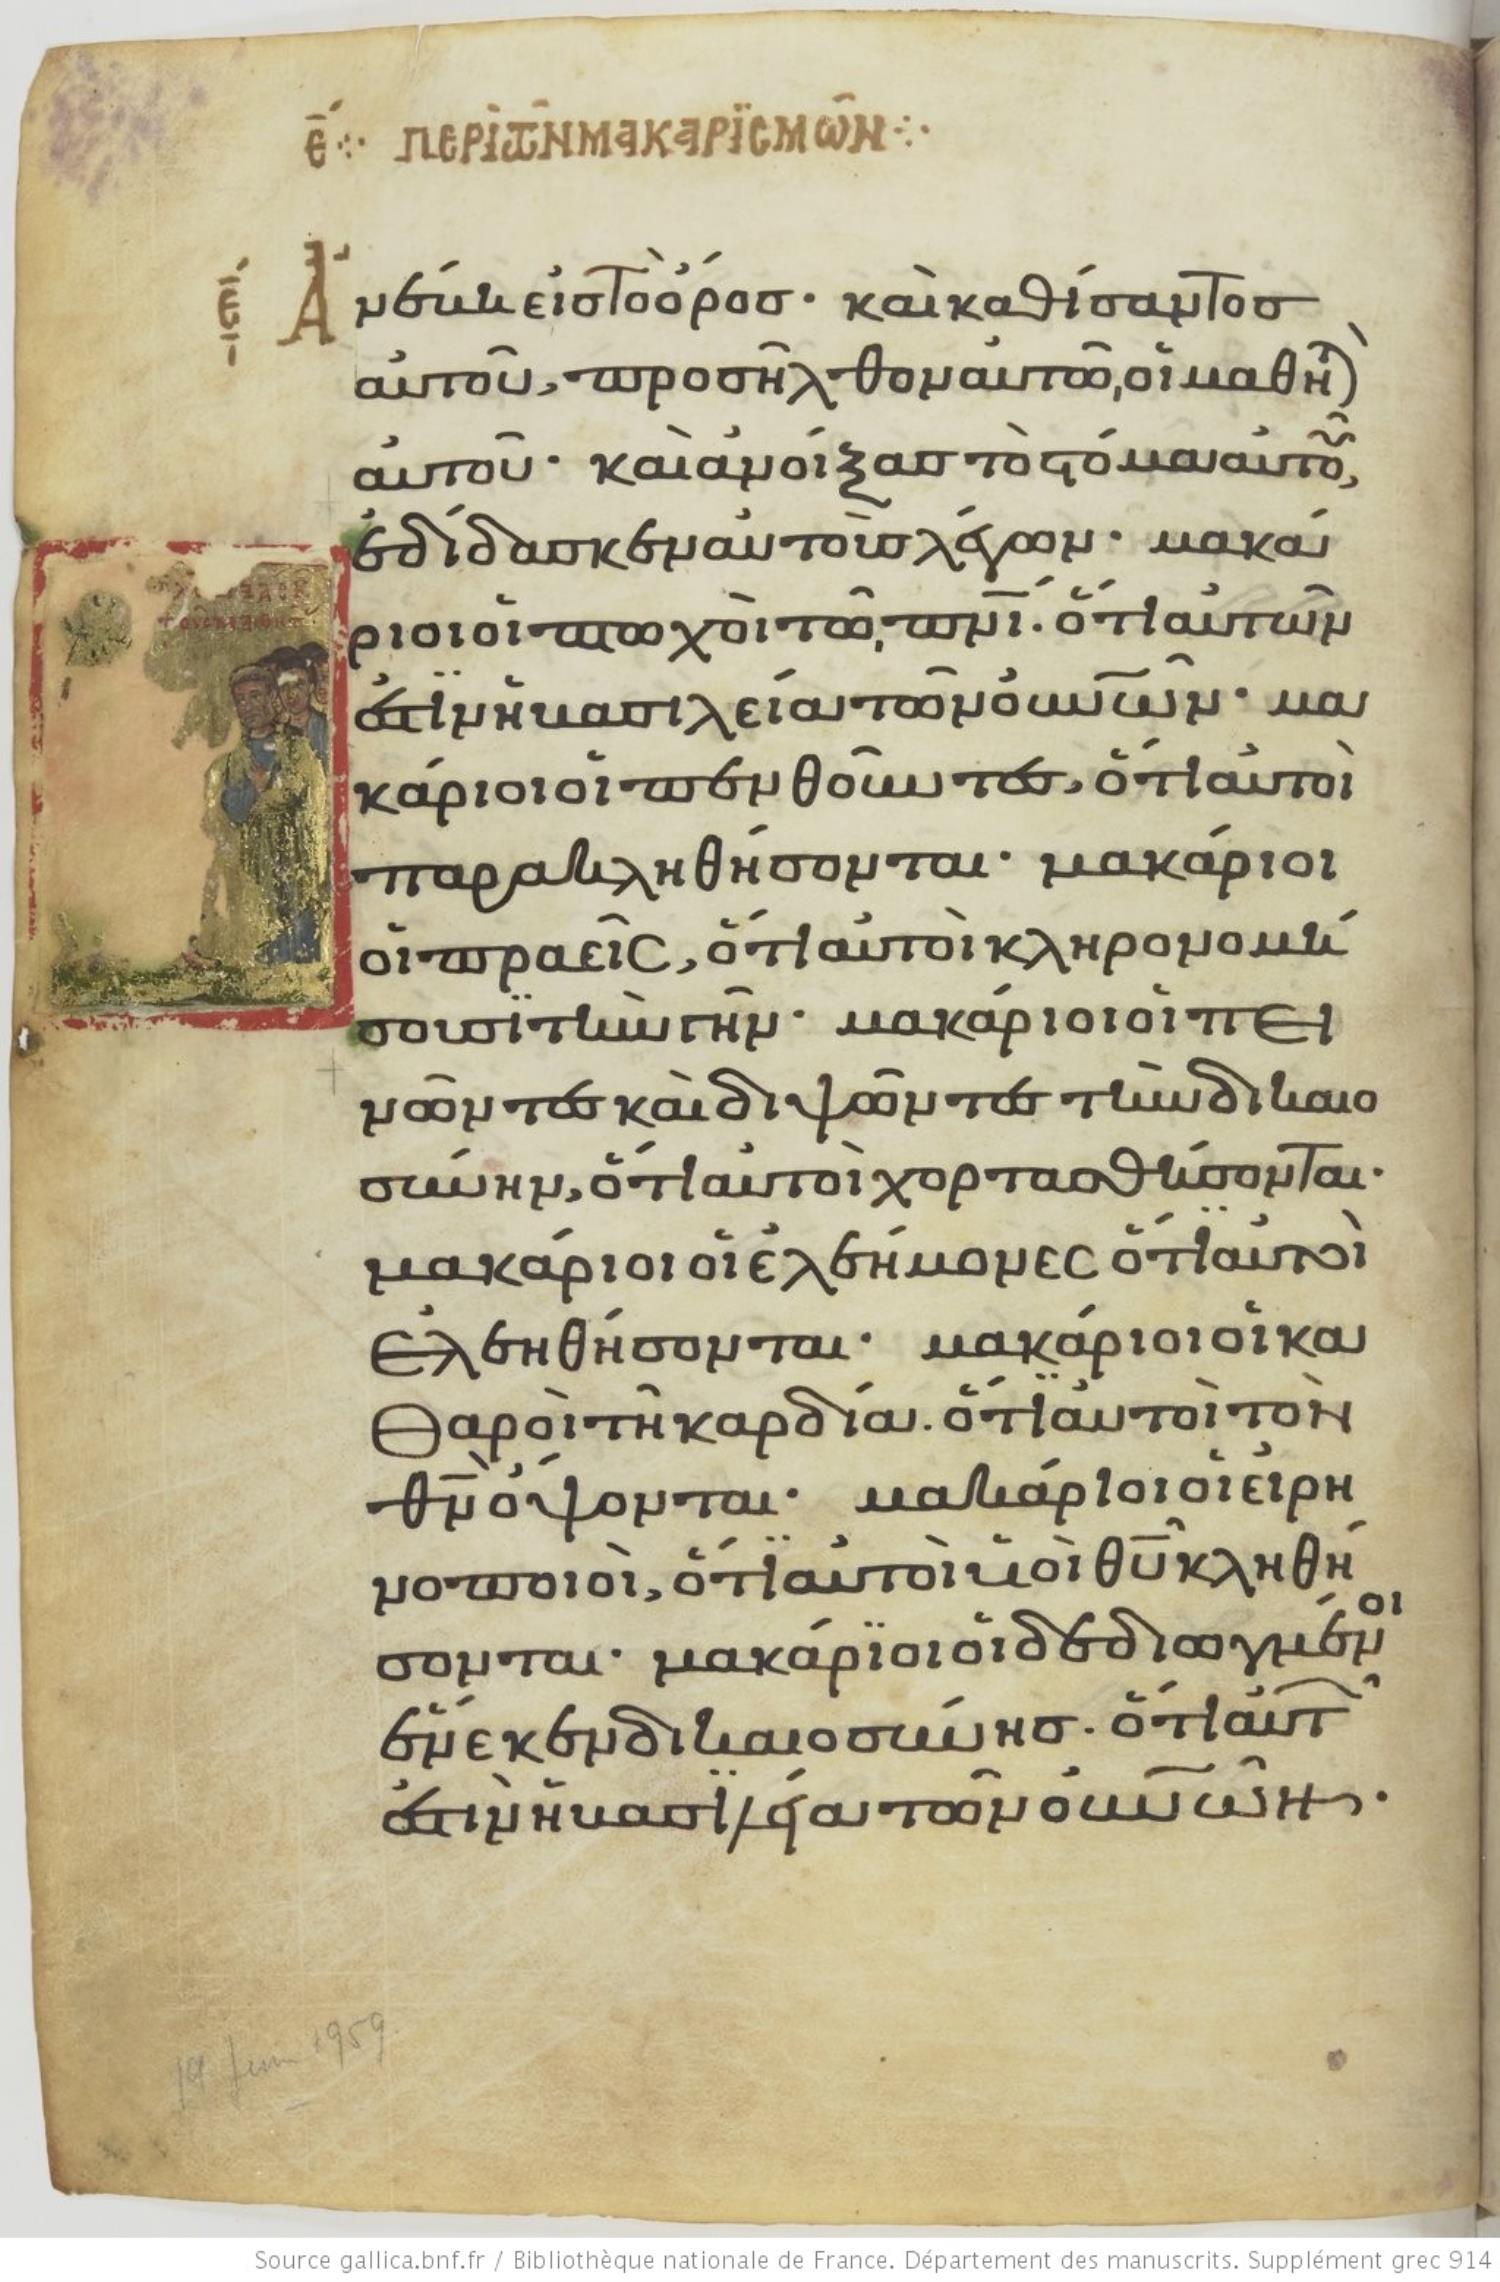 ε̄ ⁘ περὶ τῶν μακαρϊσμῶν ⁘
ε̄ Ἀ
νέβη εἰς τὸ ὄρος· καὶ καθίσαντος
αὐτοῦ, προσῆλθον αὐτῶ, οἱ μαθη
αὐτοῦ· καὶ ἀνοίξας τὸ στόμα αὐτοῦ,
ἐδίδασκεν αὐτοὺς λέγων· μακά
ριοι οἱ πτωχοὶ τῶ, πνι· ὅτι αὐτῶν
ἐστϊν ἡ βασιλεία τῶν οὐνων· μα
κάριοι οἱ πενθοῦντες, ὅτι αὐτοὶ
παρακληθήσονται· μακάριοι
οἱ πραεῖς, ὅτι αὐτοὶ κληρονομή
σουσϊ τὴν γῆν· μακάριοι οἱ πει
νῶντες καὶ διψῶντες τὴν δικαιο
σύνην, ὅτι αὐτοὶ χορτασθήσονται·
μακάριοι οἱ ἐλεήμονες ὅτϊ αὐτοὶ
ἐλεηθήσονται· μακάριοι οἱ κα
θαροὶ τῆ καρδία· ὅτϊ αὐτοὶ τὸν
θν ὄψονται· μακάριοι οἱ εἰρη
νοποιοὶ, ὅτϊ αὐτοὶ υἱοὶ θυ κληθή
σονται· μακάρϊοι οἱ δεδιωγμένοι
ἕνεκεν δικαιοσύνης· ὅτι αὐτ
ἐστιν ἡ βασϊλεία τῶν οὐνων·
19 Juin 1959
Source gallica.bnf.fr / Bibliothèque nationale de France. Département des manuscrits. Supplément grec 914